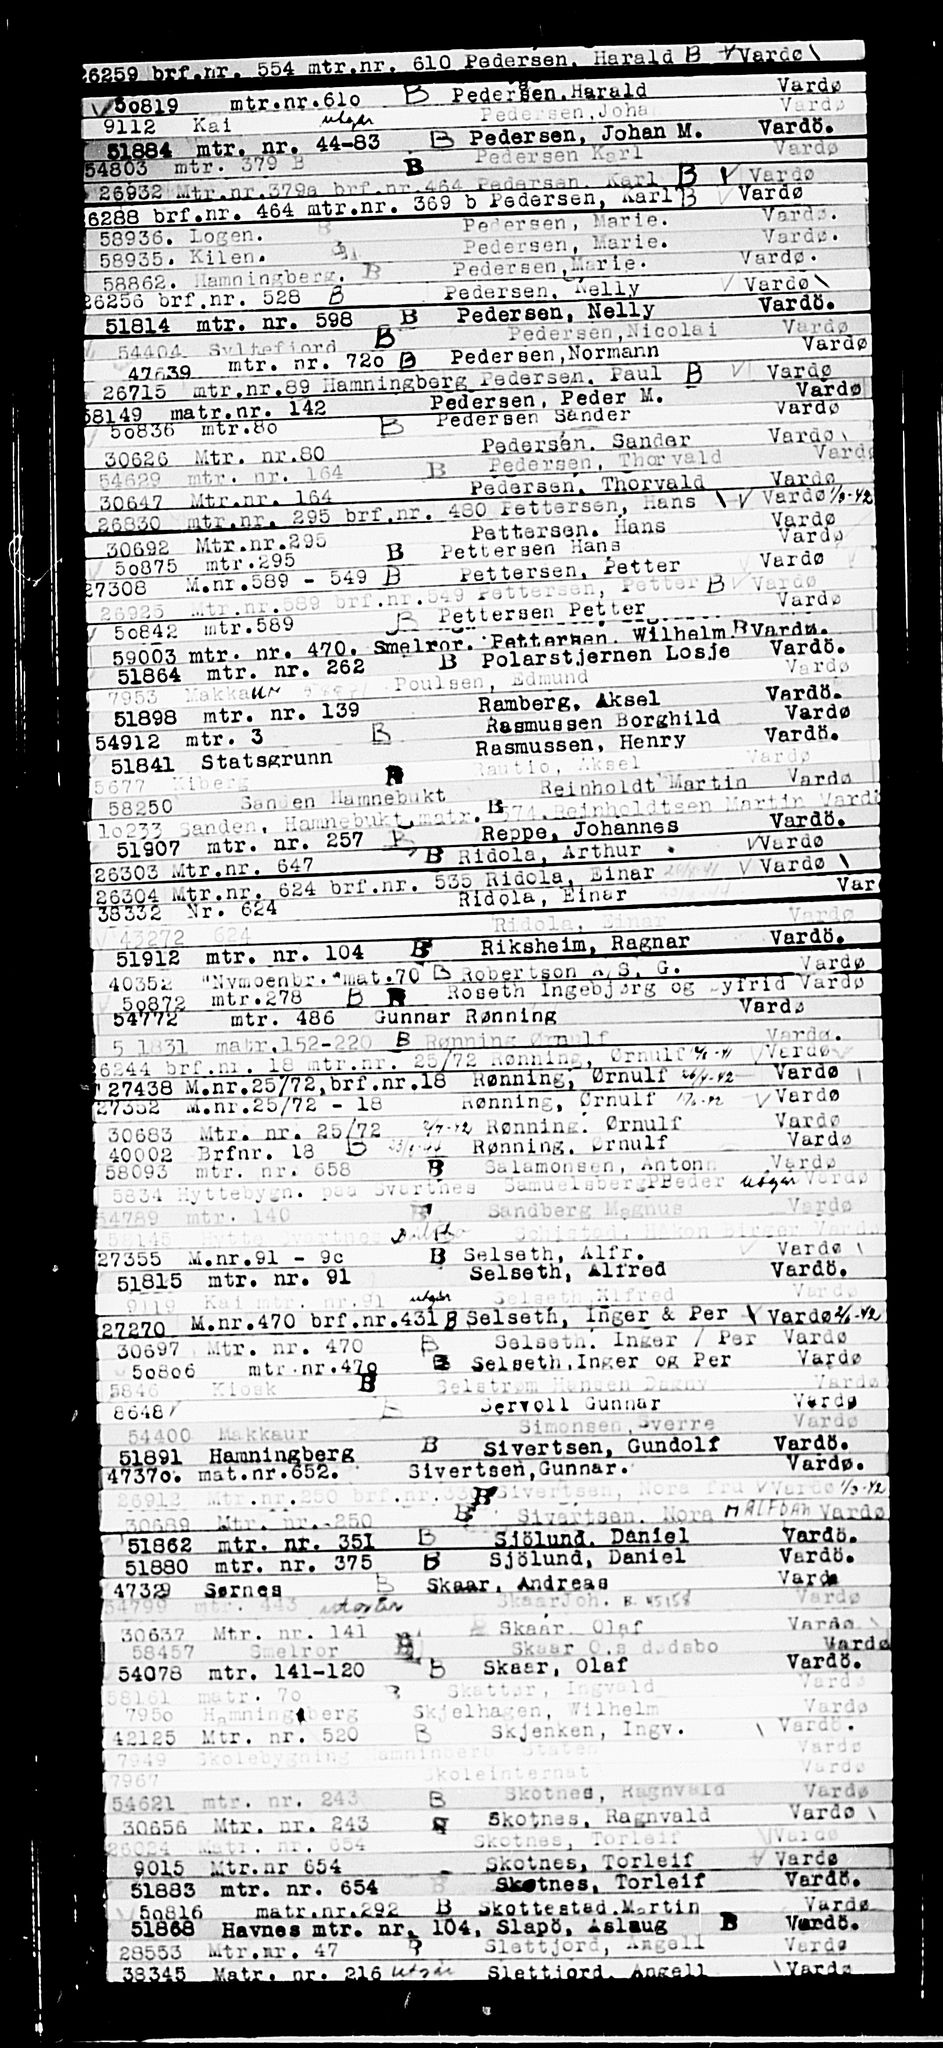 26259 brf.nr. 554 mtr.nr. 610 Pedersen, Harald B √ Vardø \
√ 50819 mtr.nr.610 B Pedersen,Harald Vardø
9112 Kai utgår Pedersen, Joha Vardø
51884 mtr. nr. 44-83 B Pedersen, Johan M. Vardö.
54803 mtr. 379 B B Pedersen Karl Vardø
26932 Mtr.nr.379a brf.nr.464 Pedersen. Karl B √ Vardø
6288 brf.nr. 464 mtr.nr. 369 b Pedersen, Karl B √ Vardø
58936. Logen. B Pedersen, Marie. Vardø.
58935. Kilen. Pedersen, Marie. Vardø.
58862. Hamningberg. B Pedersen,Marie. Vardø.
26256 brf.nr. 528 B Pedersen. Nelly √ Vardø \
51814 mtr. nr. 598 B Pedersen, Nelly Vardö.
54404 Syltefjord B Pedersen,Nicolai Vardø
47639 mtr. nr. 720 B Pedersen,Normann Vardø
26715 mtr.nr.89 Hamningberg Pedersen. Paul B √ Vardø
58149 matr.nr. 142 Pedersen, Peder M. Vardø
√ 50836 mtr.80 B Pedersen Sander Vardø
30626 Mtr. nr.80 Pedersen. Sander Vardø \
54629 mtr. nr. 164 B Pedersen, Thorvald Vardø
30647 Mtr.nr. 164 Pedersen. Thorvald Vardø
26830 mtr.nr. 295 brf.nr. 480 Pettersen, Hans \ √ Vardø 1/9-42
30692 Mtr.nr.295 Pettersen. Hans Vardø
√ 50875 mtr.295 B Pettersen Hans Vardø
27308 M.nr.589 - 549 B Pettersen, Petter √ Vardø
26925 Mtr.nr.589 brf.nr.549 Pettersen, Petter B √ Vardø
√ 50842 mtr.589 B Pettersen Petter Vardø
59003 mtr. nr. 470. Smelror. Pettersen. Wilhelm B Vardø.
51864 mtr. nr. 262 B Polarstjernen Losje Vardö.
7953 Makkaur Poulsen, Edmund Vardø
51898 mtr. nr. 139 Ramberg, Aksel Vardö.
54912 mtr. 3 B Rasmussen Borghild Vardø
51841 Statsgrunn Rasmussen, Henry Vardö.
5677 Kiberg B Rautio, Aksel Vardø
58250 Sanden Hamnebukt Reinholdt Martin Vardø
10233 Sanden, Hamnebukt,matr. B 574.Reinholdtsen Martin Vardø
51907 mtr. nr. 257 B Reppe, Johannes Vardö.
26303 Mtr.nr. 647 B Ridola, Arthur √ Vardø
26304 Mtr.nr. 624 brf.nr. 535 Ridola, Einar √ Vardø \
38332 Nr. 624 Ridola, Einar Var
√ 43272 624 Ridola, Einar Vardø
51912 mtr. nr. 104 B Riksheim, Ragnar Vardö.
40352 "Nymoenbr."mat.70 B Robertson A/S. G. Vardø
√ 50872 mtr.278 B Roseth Ingebjørg og yfrid Vardø
54772 mtr. 486 Gunnar Rønning Vardø
5 1831 matr.152-220 B Rønning Ørnulf Vardø.
26244 brf.nr. 18 mtr.nr. 25/72 Rønning, Ørnulf √ Vardø
27438 M.nr.25/72,brf.nr.18 Rønning, Ørnulf 26/9-42 Vardø \
27352 M.nr.25/72 - 18 Rønning, Ørnulf 17/6-42 √ Vardø
30683 Mtr. nr. 25/72 Rønning. Ørnulf Vardø
40002 Brfnr. 18 B Rønning. Ørnulf Vardø
58093 mtr. nr. 658 B Salamonsen, Antonn Vardø
5834 Hyttebygn. paa Svartnes SamuelsbergPPeder utgår Vardø
54789 mtr. 140 B Sandberg Magnus Vardø
27355 M.nr.91 - 90 B Selseth, Alfr. √ Vardø \
51815 mtr. nr. 91 Selseth, Alfred Vardö.
9119 Kai mtr. nr.91 utgår Selseth,Alfred Vardø
27270 M.nr.470 brf.nr.431 B Selseth, Inger & Per √ Vardø 2/6-42
30697 Mtr. nr. 470 B Selseth. Inger / Per Vardø
50806 mtr.nr.470 B Selseth,Inger og Per Vardø
5846 Kiosk B Selstrøm Hansen Dagny Vardø
8648 Servoll Gunnar Vardø
54400 Makkaur Simonsen,Sverre Vardø
51891 Hamningberg B Sivertsen, Gundolf Vardö.
47370. mat.nr.652. Sivertsen,Gunnar. Vardø.
26912 Mtr.nr.250 brf.nr.330 B Sivertsen, Nora fru √ Vardø 1/9-42
30689 Mtr. nr. 250 B Sivertsen. Nora HALFDAN Vardø
51862 mtr. nr. 351 B Sjölund, Daniel Vardö.
51880 mtr. nr. 375 B Sjölund, Daniel Vardö.
47329 Sørnes B Skaar, Andreas Vardø
54799 mtr. 443 SkaarJoh. B. 45158 Vardø
30637 Mtr. nr. 141 Skaar. Olaf Vardø \
58457 Smelror B Skaar O.s dødsbo Vardø
54078 mtr. 141-120 B Skaar, Olaf Vardö.
58161 matr. 70 B Skattør, Ingvald Vardø
7950 Hamningberg Skjelhagen, Wilhelm Vardø
42125 Mtr. nr. 520 B Skjenken, Ingv. \ Vardö.
7949 Skolebygning Hamninberg Staten Vardø
7967 Skoleinternat Vardø
54621 mtr. nr. 243 B Skotnes, Ragnvald Vardø
30656 Mtr. nr. 243 Skotnes, Ragnvald Vardø \
26024 Matr. nr. 654 Skotnes, Torleif √ Vardø
9015 Mtr.nr 654 Skotnes, Torleif √ Vardø
51883 mtr. nr. 654 B Skotnes, Torleif Vardö.
√ 50816 matr.nr.292 B Skottestad.Martin Vardø
51868 Havnes mtr. nr. 104, Slapö, Aslaug B Vardö.
28553 Mtr.nr. 47 B Slettjord, Angell Vardø
38345 Matr. nr. 216 utgår Slettjord. Angell \ Vardø